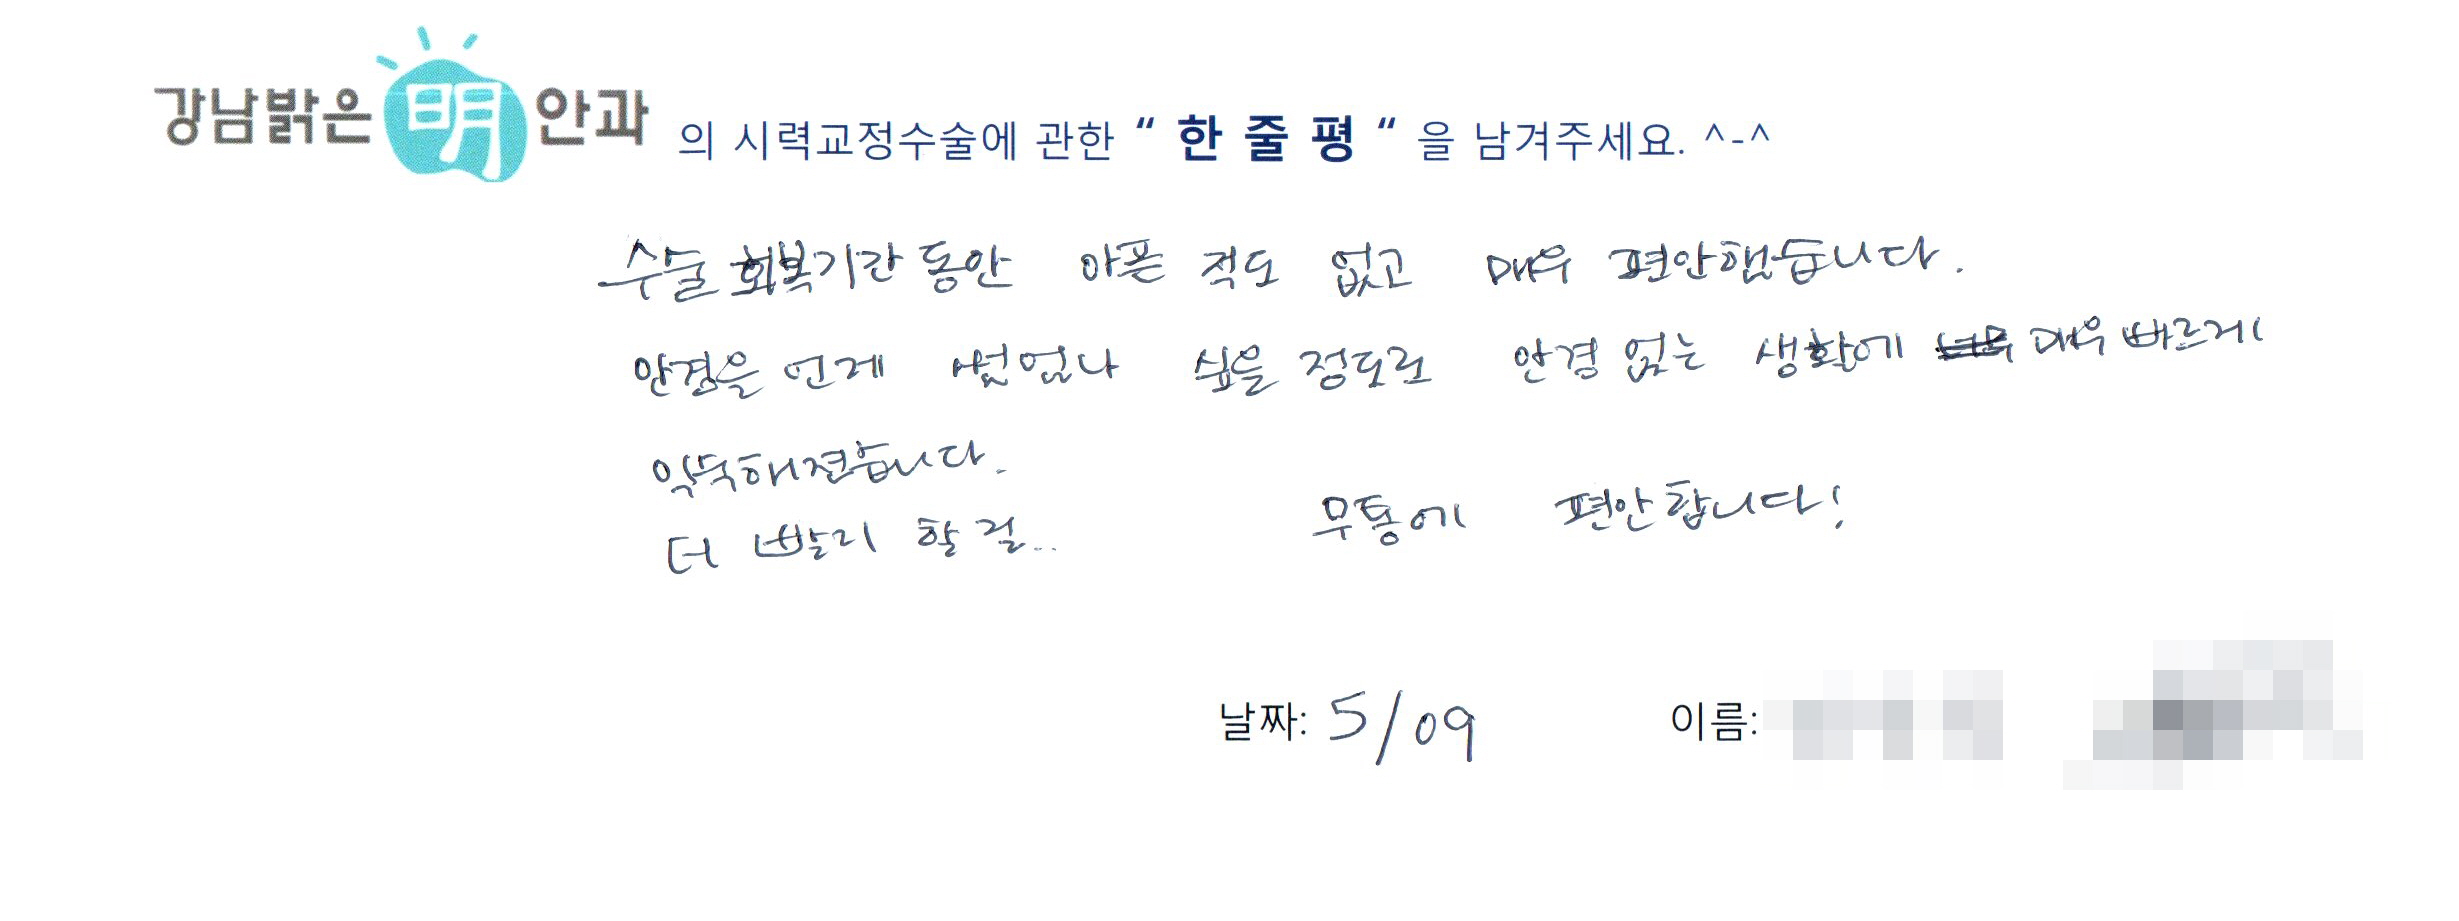 강남밝은 明 안과 의 시력교정수술에 관한 “ 한 줄 평 “ 을 남겨주세요. ^-^
수술 회복기간 동안 아픈 적도 없고 매우 편안했습니다.
안경을 언제 썼었나 싶을 정도로 안경 없는 생활에 매우 빠르게
익숙해졌습니다.
더 빨리 할 걸.. 무통에 편안합니다!
날짜: 5/09 이름: